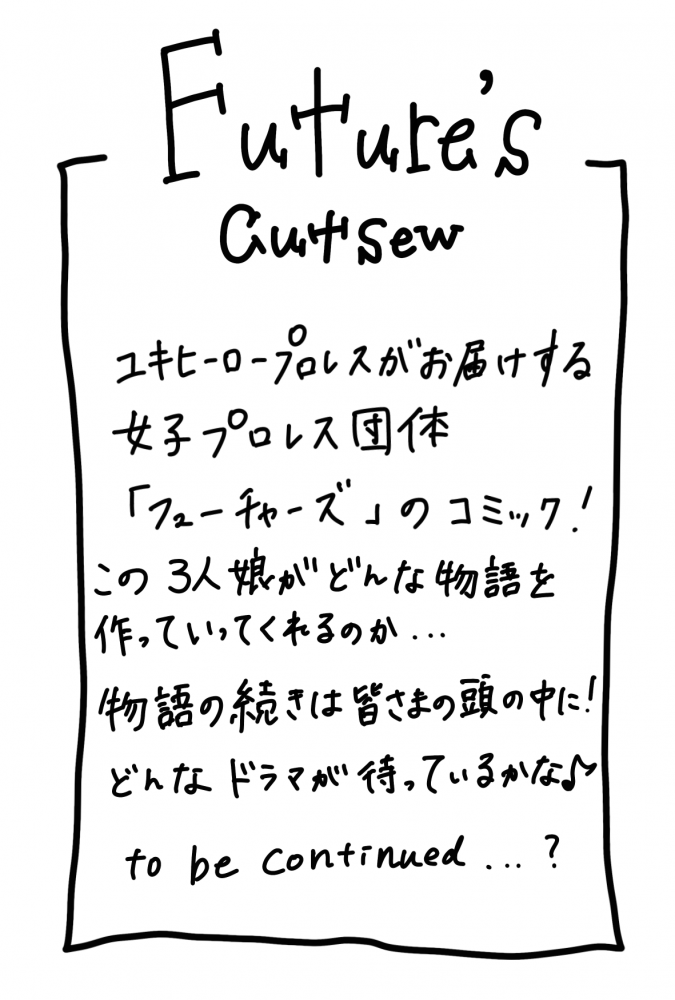 Future's
Cutsew
ユキヒーロープロレスがお届けする
女子プロレス団体
「フューチャーズ」のコミック!
この3人娘がどんな物語を
作っていってくれるのか...
物語の続きは皆さまの頭の中に!
どんなドラマが待っているかな♪
to be continued ...?